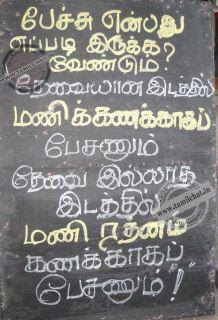 பேச்சு என்பது
எப்படி இருக்க
வேண்டும்?
தேவையான இடத்தில்
மணிக்கணக்காகப்
பேசணும்
தேவை இல்லாத
இடத்தில்
மணி ரத்னம்
கணக்காகப்
பேசணும்!
www.tamilchat.in